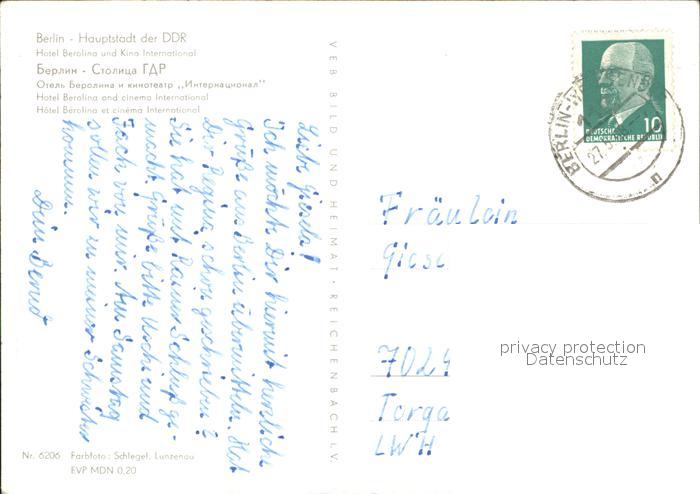 Berlin - Hauptstadt der DDR
Hotel Berolina und Kino International
Берлин - Столица ГДР
Отель Беролина и кинотеатр ,,Интернационал"
Hotel Berolina and cinema International
Hôtel Bérolina et cinéma International
Liebe Gisela!
Ich möchte Dir hiermit herzliche
Grüße aus Berlin übermitteln. Hat
Dir Regina schon geschrieben?
Sie hat mit Rainer Schluß ge-
macht. Grüße bitte Uschi und
von mir. Am Samstag
sollen wir zu meiner Schwester
kommen.
Dein Bernd
Nr. 6206 Farbfoto: Schlegel, Lunzenau
EVP MDN 0,20
VEB BILD UND HEIMAT · REICHENBACH I. V.
10
DEUTSCHE
DEMOKRATISCHE REPUBLIK
BERLIN-
27.
n
Fräulein
Gise
7024
Torga
LWH
privacy protection
Datenschutz